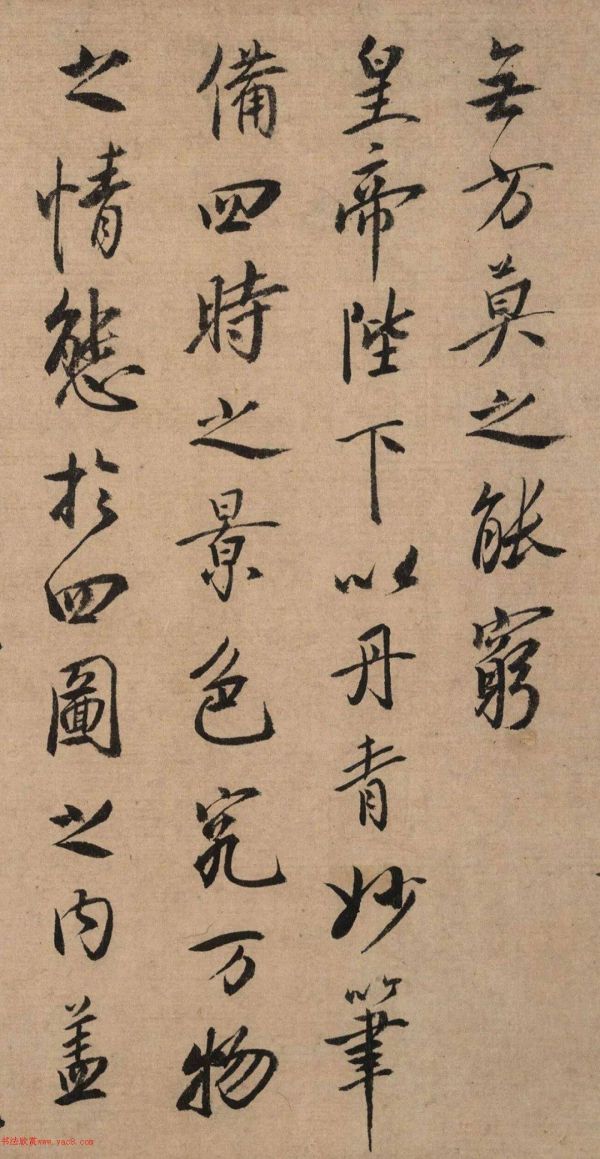 無方莫之能窮
皇帝陛下以丹青妙筆
備四時之景色究万物
之情態於四圖之内盖
书法欣赏www.yac8.com